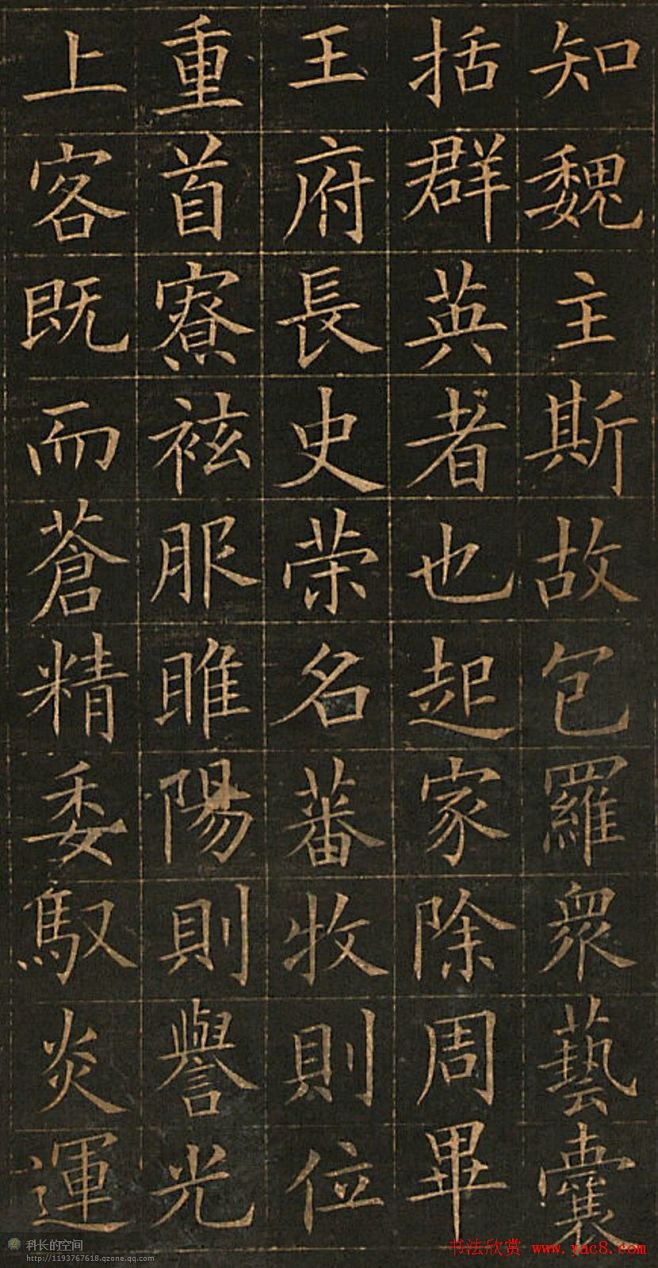 知魏主斯故包羅衆藝囊
括群英者也起家除周畢
王府長史荣名蕃牧則位
重首寮袨服睢陽則譽光
上客既而蒼精委馭炎運
科长的空间
http://1193767618.qzone.qq.com
书法欣赏 www.yac8.com